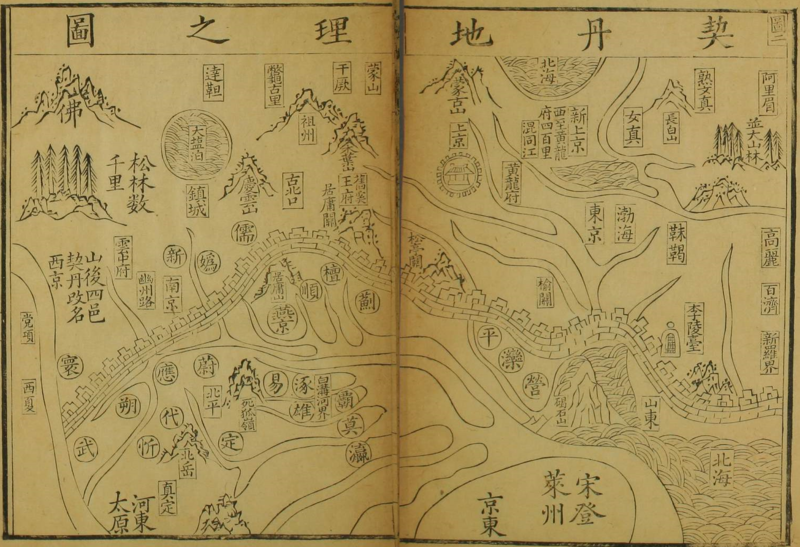 契丹地理之圖
圖二
阿里眉
熟女真
長白山
女真
並大山林
高麗
百濟
新羅界
靺鞨
渤海
東京
北海
新上京
西至黃龍
府四百里
混同江
黃龍府
蒙古山
上京
松亭關
榆關
李陵臺
山東
碣石山
北海
平
灤
營
宋登
萊州
京東
蒙山
于厥
達靼
祖州
古北口
居庸關
大鹽泊
鎮城
佛
松林數
千里
儒
媯
新
南京
幽州路
雲中府
山後四邑
契丹改名
西京
党項
西夏
居庸山
燕京
順
檀
薊
寰
應
蔚
朔
代
武
忻
北岳
北平
易
涿
雄
霸
莫
瀛
定
真定
河東
太原